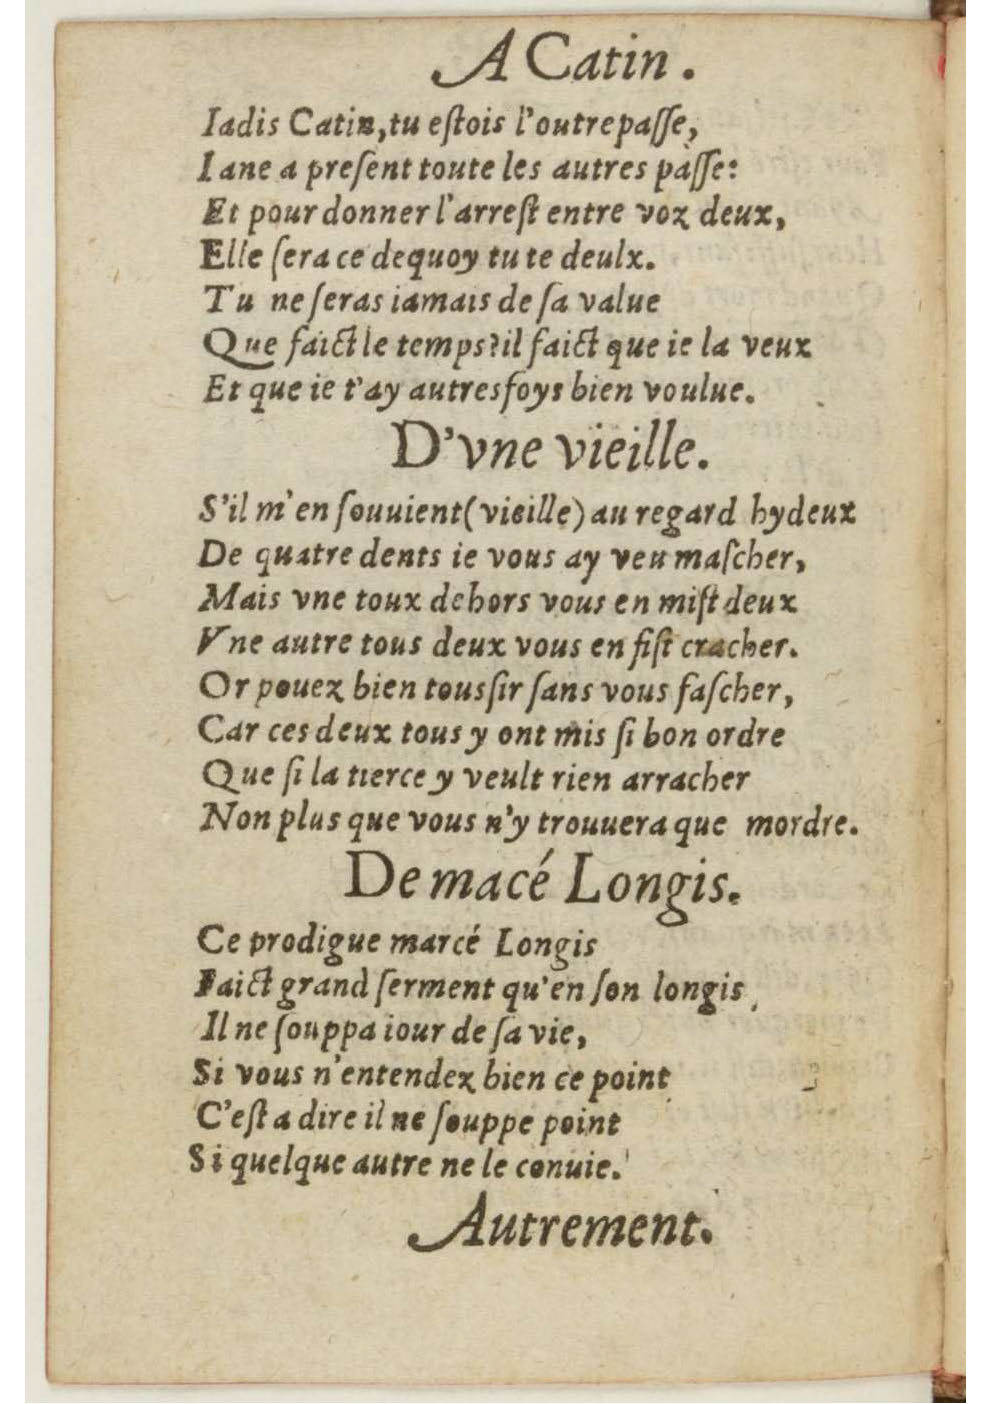 A Catin.
Iadis Catin, tu eſtois l'outrepaſſe,
Iane a preſent toute les autres pàſſe:
Et pour donner l'arreſt entre voz deux,
Elle ſera ce dequoy tu te deulx.
Tu ne ſeras iamais de ſa value
Que faict le temps? il faict que ie la veux
Et que ie t'ay autresfoys bien voulue.
D'vne vieille.
S'il m'en ſouuient (vieille) au regard hydeux
De quatre dents ie vous ay veu maſcher,
Mais vne toux dehors vous en miſt deux
Vne autre tous deux vous en fiſt cracher.
Or pouez bien touſſir ſans vous faſcher,
Car ces deux tous y ont mis ſi bon ordre
Que ſi la tierce y veult rien arracher
Non plus que vous n'y trouuera que mordre.
De macé Longis.
Ce prodigue marcé Longis
Faict grand ſerment qu'en ſon longis,
Il ne ſouppa iour de ſa vie,
Si vous n'entendez bien ce point
C'eſt a dire il ne ſouppe point
Si quelque autre ne le conuie.
Autrement.